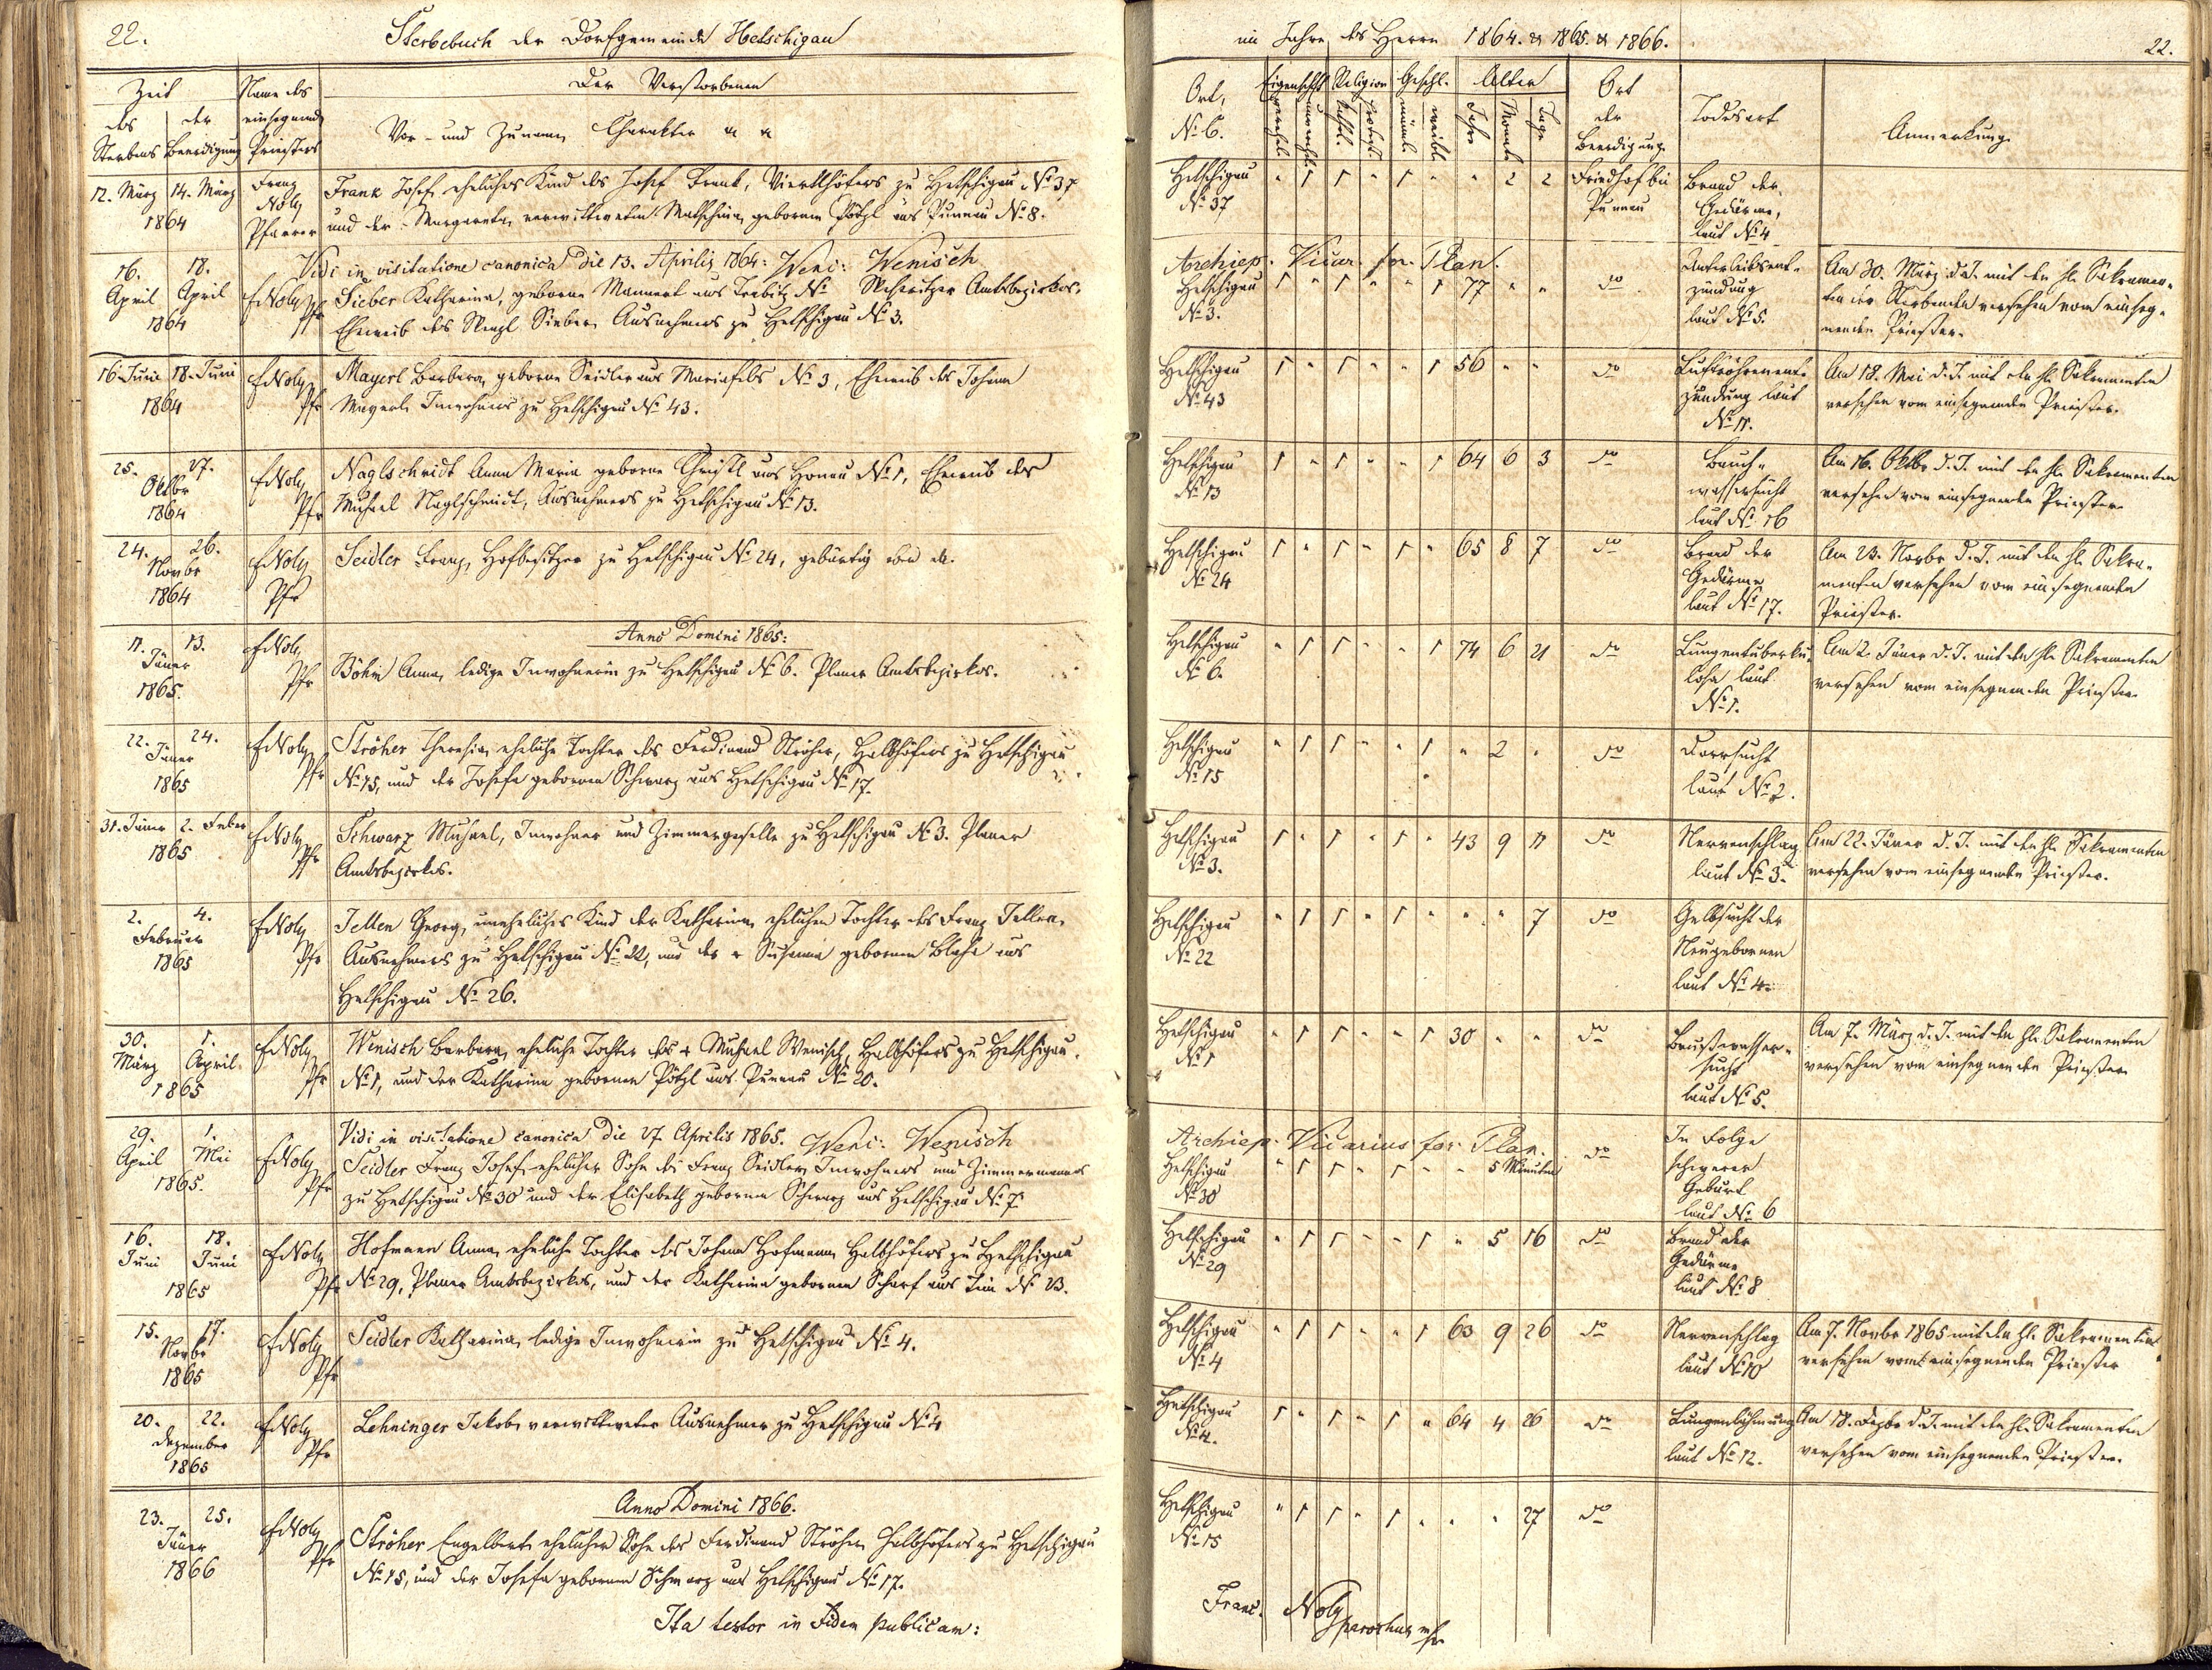 22.
Sterbebuch der Dorfgemeinde Hetschigau
Zeit
des Sterbens
der Beerdigung
Name des
einsegnenden
Priesters
Der Verstorbenen
Vor- und Zunamen, Charakter
12. März 14. März
1864
Franz
Noly
Pfarrer
Frank Josef eheliches Kind des Josef Frank, Viertlhöfers zu Hetschigau No 37
und der Margareta verwittweten Matschiner gebornen Pötzl aus Punnau No 8.
Vidi in visitatione canonica die 13. Aprilis 1864: Wenc: Wenisch
16. 18.
April April
1864
F Noly
Pfr
Sieber Katharina, geborne Mannert aus Trebitz No Amtsbezirkes,
Eheweib des Wenzl Sieber Ausnehmers zu Hetschigau No 3.
16. Juni 18. Juni
1864
F Noly
Pfr
Mayerl Barbara, geborne Seidler aus Mariafels No 3, Eheweib des Johann
Mayerl Inwohners zu Hetschigau No 43.
25. 27.
Oktbr
1864
F Noly
Pfr
Naglschmidt Anna Maria geborne Christl aus Honau No 1, Eheweib des
Michael Naglschmidt, Ausnehmers zu Hetschigau No 13.
24. 26.
Novbr
1864
F Noly
Pfr
Seidler Franz, Hofbesitzer zu Hetschigau No 24, gebürtig von da.
Anno Domini 1865:
11. 13.
Jäner
1865.
F Noly
Pfr
Böhm Anna, ledige Inwohnerin zu Hetschigau No 6. Planer Amtsbezirkes.
22. 24.
Jäner
1865
F Noly
Pfr
Ströher Theresia, eheliche Tochter des Ferdinand Ströher, Halbhöfers zu Hetschigau
No 15, und der Josefa gebornen Schwarz aus Hetschigau No 17.
31. Jäner 2. Feber
1865
F Noly
Pfr
Schwarz Michael, Inwohner und Zimmergeselle zu Hetschigau No 3. Planer
Amtsbezirkes.
2. 4.
Februar
1865
F Noly
Pfr
Tellen Georg, uneheliches Kind der Katharina, ehelichen Tochter des Franz Tellen
Ausnehmers zu Hetschigau No 22, und der Susanna gebornen Blaha aus
Hetschigau No 26.
30. 1.
März April
1865
F Noly
Pfr
Wenisch Barbara, eheliche Tochter des + Michael Wenisch, Halbhöfers zu Hetschigau
No 1, und der Katharina gebornen Pötzl aus Punnau No 20.
Vidi in visitatione canonica die 27 Aprilis 1865. Wenc: Wenisch
29. 1.
April Mai
1865.
F Noly
Pfr
Seidler Franz Josef, ehelicher Sohn des Franz Seidler, Inwohners und Zimmermannes
zu Hetschigau No 30 und der Elisabeth gebornen Schwarz aus Hetschigau No 7.
16. 18.
Juni Juni
1865
F Noly
Pfr
Hofmann Anna, eheliche Tochter des Johann Hofmann Halbhöfers zu Hetschigau
No 29, Planer Amtsbezirkes, und der Katharina gebornen Scharf aus No 23.
15. 17.
Novbr
1865
F Noly
Pfr
Seidler Katharina, ledige Inwohnerin zu Hetschigau No 4.
20. 22.
Dezember
1865
F Noly
Pfr
Lehninger Jakob, verwittweter Ausnehmer zu Hetschigau No 4
Anno Domini 1866.
23. 25.
Jäner
1866
F Noly
Pfr
Ströher Engelbert, ehelicher Sohn des Ferdinand Ströher Halbhöfers zu Hetschigau
No 15, und der Josefa gebornen Schwarz aus Hetschigau No 17.
Ita testor in Fidem publicam:
im Jahre des Herrn 1864. & 1865. & 1866.
22.
Ort,
No C.
Eigenschft
verehel.
unverehel.
Religion
kathol.
protest.
Geschl.
männl.
weibl.
Alter
Jahr
Monat
Tage
Ort
der
Beerdigung
Todesart
Anmerkung.
Hetschigau
No 37
" 1 1 " 1 " " 2 2
Friedhof bei
Punnau
Brand der
Gedärme,
laut No 4
Archiep. Vicar. for. Plan.
Hetschigau
No 3.
1 " 1 " " 1 77 " "
do
Unterleibsent-
zündung
laut No 5.
Am 30. März d. J. mit den hl. Sakramen-
ten der Sterbenden versehen vom einseg-
nenden Priester.
Hetschigau
No 43
1 " 1 " " 1 56 " "
do
Luftröhrenent-
zündung laut
No 11.
Am 18. Mai d. J. mit den hl. Sakramenten
versehen vom einsegnenden Priester.
Hetschigau
No 13
1 " 1 " " 1 64 6 3
do
Bauch-
wassersucht
laut No 16
Am 16. Oktbr d. J. mit den hl. Sakramenten
versehen vom einsegnenden Priester
Hetschigau
No 24
1 " 1 " 1 " 65 8 7
do
Brand der
Gedärme
laut No 17.
Am 23. Novbr d. J. mit den hl. Sakra-
menten versehen vom einsegnenden
Priester.
Hetschigau
No 6.
" 1 1 " " 1 74 6 21
do
Lungentuberku-
lose laut
No 1.
Am 2. Jäner d. J. mit den hl. Sakramenten
versehen vom einsegnenden Priester
Hetschigau
No 15
" 1 1 " " 1 " 2 "
do
Darrsucht
laut No 2.
Hetschigau
No 3.
1 " 1 " 1 " 43 9 11
do
Nervenschlag
laut No 3.
Am 22. Jäner d. J. mit den hl. Sakramenten
versehen vom einsegnenden Priester.
Hetschigau
No 22
" 1 1 " 1 " " " 7
do
Gelbsucht der
Neugebornen
laut No 4.
Hetschigau
No 1
" 1 1 " " 1 30 " "
do
Brustwasser-
sucht
laut No 5.
Am 7. März d. J. mit den hl. Sakramenten
versehen vom einsegnenden Priester
Archiep. Vicarius for. Plan.
Hetschigau
No 30
" 1 1 " 1 " " 5 Minuten
do
In Folge
schwerer
Geburt
laut No 6
Hetschigau
No 29
" 1 1 " " 1 " 5 16
do
Brand der
Gedärme
laut No 8
Hetschigau
No 4
" 1 1 " " 1 63 9 26
do
Nervenschlag
laut No 10
Am 7. Novbr 1865 mit den hl. Sakramenten
versehen vom einsegnenden Priester
Hetschigau
No 4.
1 " 1 " 1 " 64 4 26
do
Lungenlähmung
laut No 12.
Am 18. Dezbr d. J. mit den hl. Sakramenten
versehen vom einsegnenden Priester.
Hetschigau
No 15
" 1 1 " 1 " " " 27
do
Franc. Noly
parochus